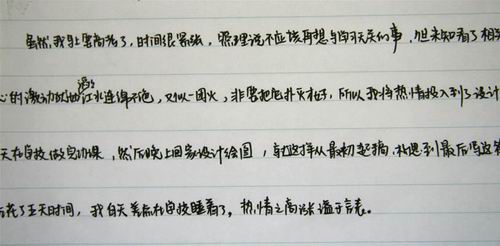 虽然我马上要高考了,时间很紧张,照理说不应该再想与聊天关的事,但来知看了相
心的激动就如滔滔江水连绵不绝,又似一团火,非要把它扑灭才行,所以我将热情投入到了设计
天在学校做完功课,然后晚上回家设计绘图,就这样从最初起稿,构思到最后写这
花了五天时间,我白天差点在学校睡着了,热情之高涨溢于言表。